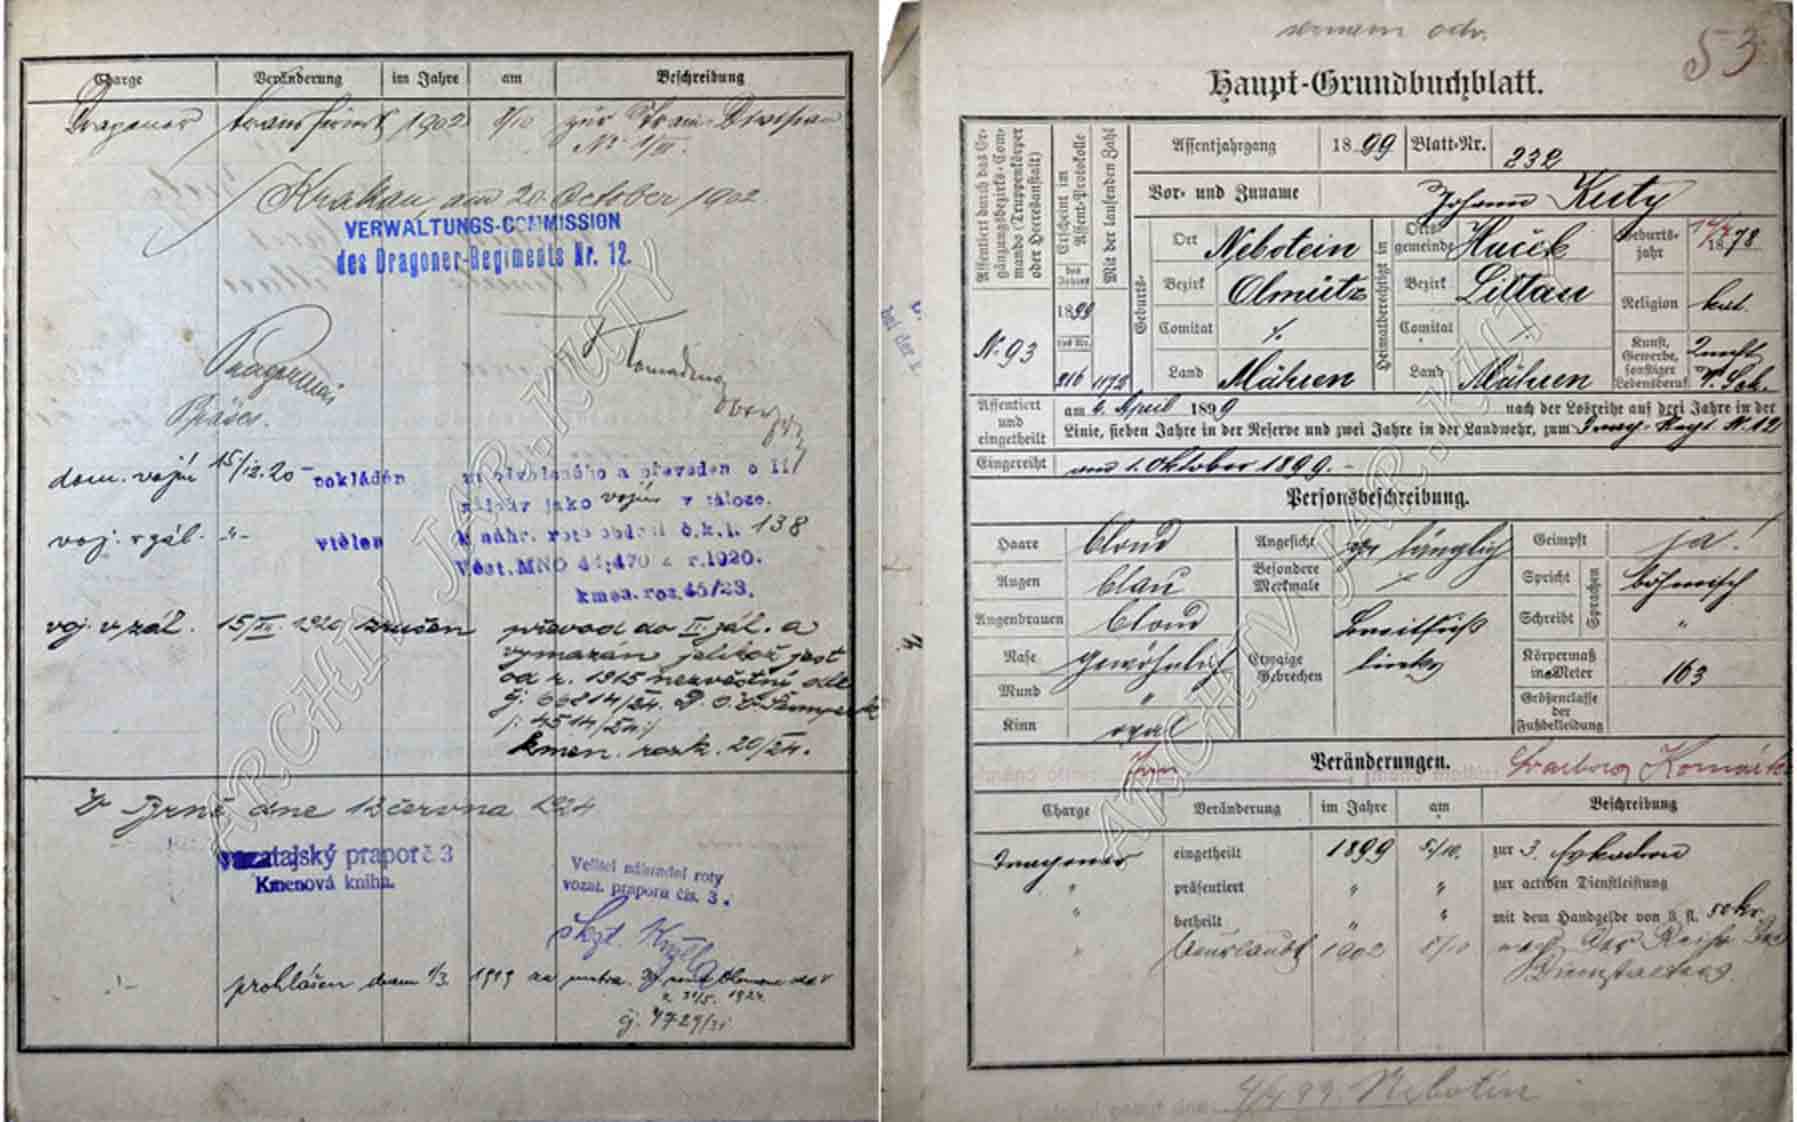 Charge Veränderung im Jahre am Beschreibung
Dragoner transferirt 1902 5/10 zur Train-Division
No 1/III.
Krakau, am 20. October 1902
VERWALTUNGS-COMMISSION
des Dragoner-Regiments Nr. 12.
Präses.
dom. vojín 15/12.20 pokládán
a převeden do II
zálohy jako vojín v záloze.
voj. v zál. -"- vtělen k náhr. rotě č.k.l. 138
Věst. MNO 44;470 z r. 1920.
kmen. roz. 45/23.
voj. v zál. 15/XII. 1920 zrušen převod do II. zál. a
vymazán jelikož jest
od r. 1915 nezvěstný dle
čj. 66814/24.
j: 4514/24:/
kmen. rozk. 20/24.
V Brně dne 12 června 1924
vozatajský prapor č 3
Kmenová kniha.
Velitel náhradní roty
vozat. praporu čís. 3.
prohlášen dnem 1/3. 1919 za
z 31/5. 1924
čj.
53
Haupt-Grundbuchblatt.
Assentiert durch das Ergänzungsbezirks-Commando (Truppenkörper oder Heeresanstalt)
No 93
Erscheint im Assent-Protokolle
des Jahres
1899
216
Mit der laufenden Zahl
1172
Assentjahrgang 1899 Blatt-Nr. 232
Vor- und Zuname Johann Kuty
Geburts-
Ort Nebotein
Bezirk Olmütz
Comitat ./.
Land Mähren
Heimatberechtigt in
Ortsgemeinde
Bezirk Littau
Comitat
Land Mähren
Geburtsjahr 1878
Religion kat.
Kunst, Gewerbe, sonstiger Lebensberuf
Assentiert und eingetheilt
am 4. April 1899 nach der Losreihe auf drei Jahre in der
Linie, sieben Jahre in der Reserve und zwei Jahre in der Landwehr, zum Drag. Regt. N. 12
Eingereiht am 1. Oktober 1899. -
Personsbeschreibung.
Haare blond
Augen blau
Augenbrauen blond
Nase gewöhnlich
Mund "
Kinn oval
Angesicht länglich
Besondere Merkmale
Etwaige Gebrechen Breitfuß
links
Geimpft ja!
Spricht Sprachen böhmisch
Schreibt "
Körpermaß in Meter 163
Größenclasse der Fußbekleidung
Veränderungen.
Charge Veränderung im Jahre am Beschreibung
Dragoner eingetheilt 1899 5./10. zur 3. Eskadron
" präsentiert " " zur activen Dienstleistung
" betheilt " " mit dem Handgelde von ö. fl.
" beurlaubt 1902 5/10 nach der Reihe des
Dienstalters.
4/4 99. Nebotin
ARCHIV JAR. KUTY
ARCHIV JAR. KUTY